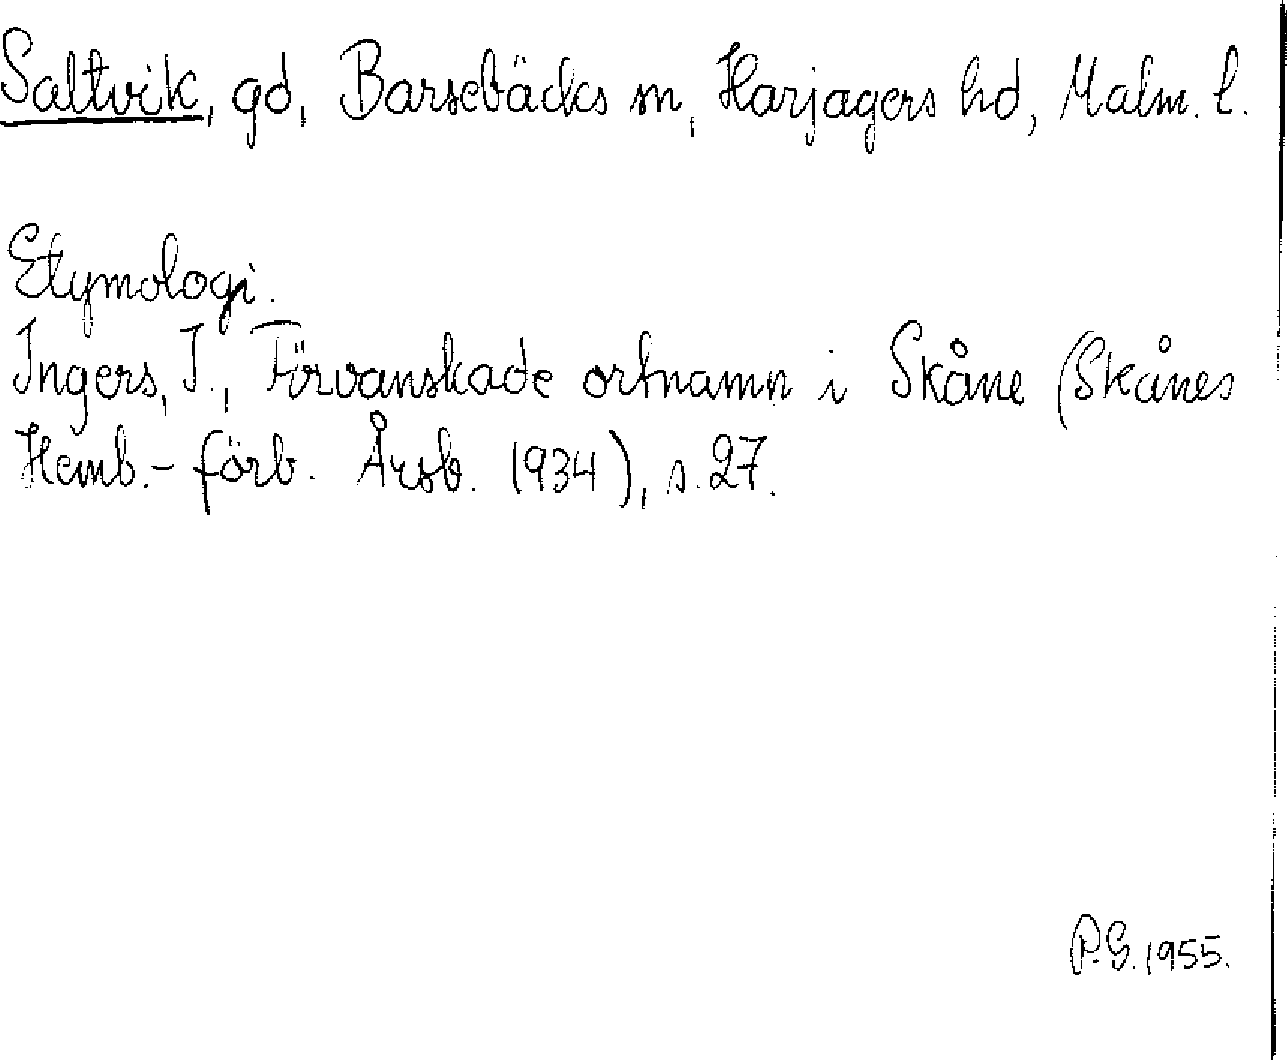 Saltvik, gd, Barsebäcks sn, Harjagers hd, Malm. l.
Etymologi.
Ingers, I., Förvanskade ortnamn i Skåne (Skånes
Hemb.-förb. Årsb. 1934), s. 27.
P.G. 1955.